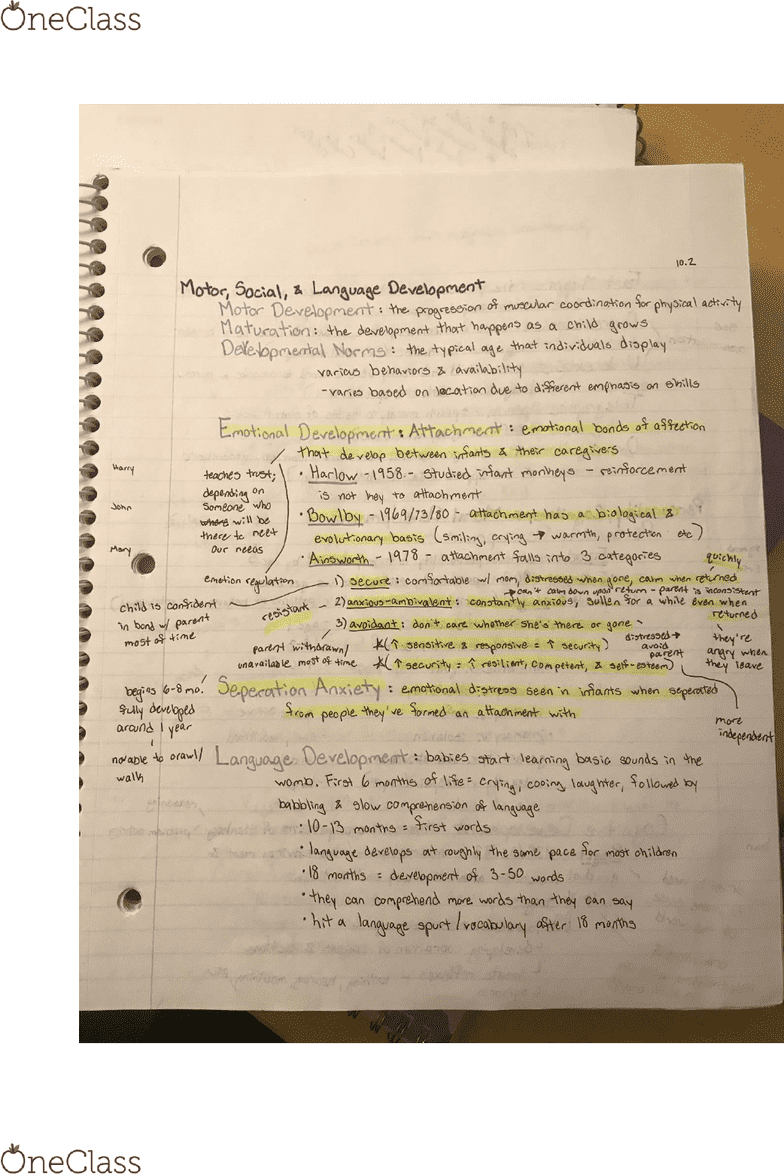 OneClass
10.2
Motor, Social, & Language Development
Motor Development: the progression of muscular coordination for physical activity
Maturation: the development that happens as a child grows
Developmental Norms: the typical age that individuals display
various behaviors & availability
-varies based on location due to different emphasis on skills
Emotional Development: Attachment: emotional bonds of affection
that develop between infants & their caregivers
Harry
• Harlow -1958- studied infant monkeys - reinforcement
is not key to attachment
John
• Bowlby - 1969/73/80 - attachment has a biological &
evolutionary basis (smiling, crying → warmth, protection etc)
Mary
• Ainsworth - 1978 - attachment falls into 3 categories
teaches trust;
depending on
someone who
will be
there to meet
our needs
emotion regulation
1) secure: comfortable w/ mom, distressed when gone, calm when returned
quickly
→can't calm down upon return - parent is inconsistent
resistant - 2) anxious-ambivalent: constantly anxious, sullen for a while even when
returned
they're
angry when
they leave
child is confident
in bond w/ parent
most of time
3) avoidant: don't care whether she's there or gone
distressed→
avoid
parent
parent withdrawn/
unavailable most of time
*(↑ sensitive & responsive = ↑ security)
*(↑ security = ↑ resilient, competent, & self-esteem)
more
independent
begins 6-8 mo.
fully developed
around 1 year
now able to crawl/
walk
Seperation Anxiety: emotional distress seen in infants when seperated
from people they've formed an attachment with
Language Development: babies start learning basic sounds in the
womb. First 6 months of life = crying, cooing laughter, followed by
babbling & slow comprehension of language
• 10-13 months = first words
• language develops at roughly the same pace for most children
• 18 months = development of 3-50 words
• they can comprehend more words than they can say
• hit a language spurt/vocabulary after 18 months
OneClass